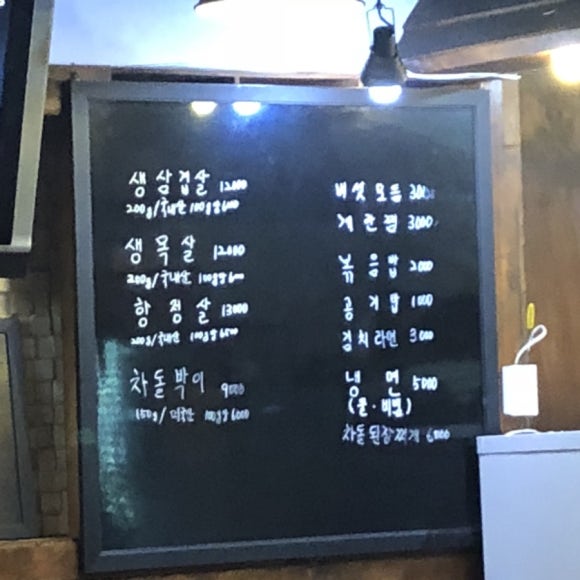 생삼겹살 12000
200g/국내산 100g당 6000
생목살 12000
200g/국내산 100g당 6000
항정살 13000
200g/국내산 100g당 6500
차돌박이 9000
150g/미국산 100g당 6000
버섯모듬 3000
계란찜 3000
볶음밥 2000
공기밥 1000
김치라면 3000
냉면 5000
(물·비빔)
차돌된장찌개 6000